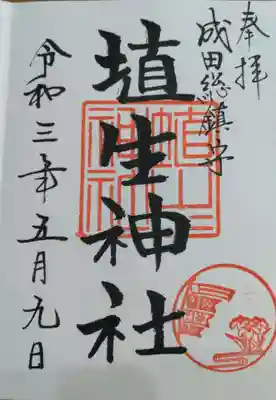 奉拝
成田総鎮守
埴生神社
令和三年五月九日